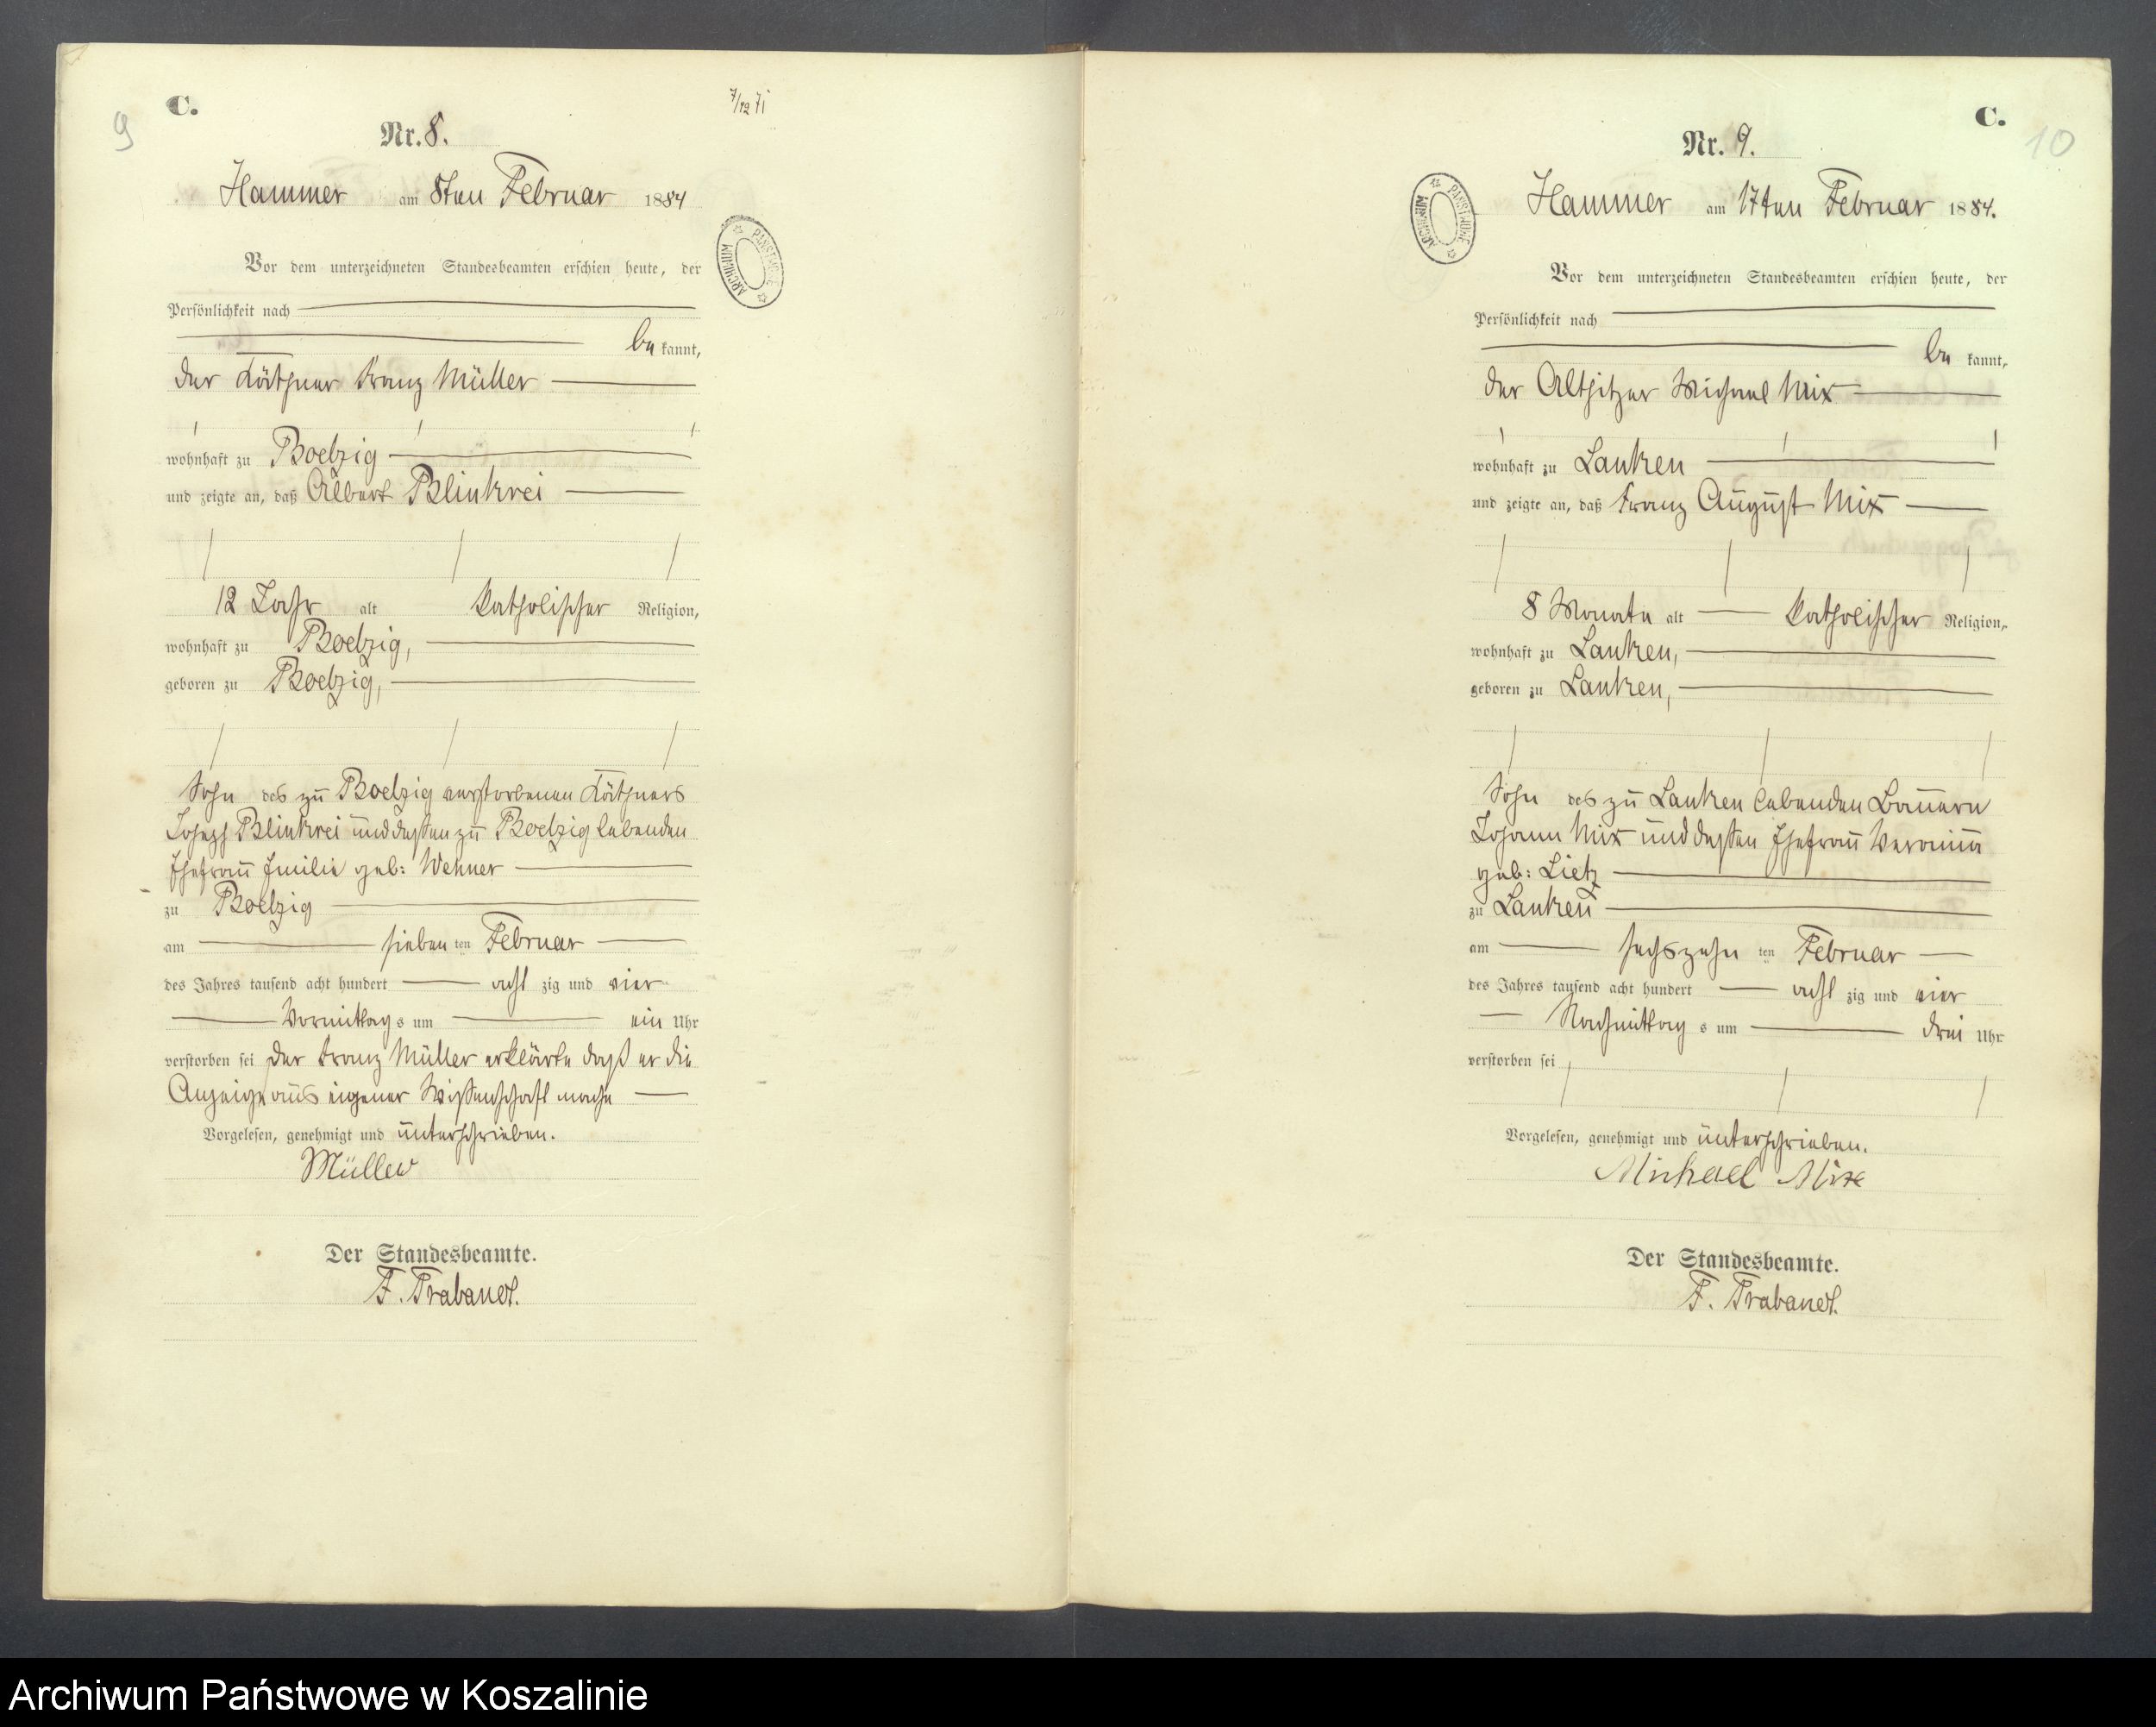 9
C.
7/12 71
Nr. 8.
Hammer am 8ten Februar 1884
ARCHIWUM PAŃSTWOWE
Vor dem unterzeichneten Standesbeamten erschien heute, der
Persönlichkeit nach
be kannt,
der Käthner Franz Müller
wohnhaft zu Boelzig
und zeigte an, daß Albert Blinkrei
12 Jahr alt katholischer Religion,
wohnhaft zu Boelzig,
geboren zu Boelzig,
Sohn des zu Boelzig verstorbenen Käthners
Joseph Blinkrei und dessen zu Boelzig lebenden
Ehefrau Emilie geb: Wehner
zu Boelzig
am sieben ten Februar
des Jahres tausend acht hundert acht zig und vier
Vormittag s um ein Uhr
verstorben sei der Franz Müller erklärte daß er die
Anzeige aus eigener Wissenschaft mache
Vorgelesen, genehmigt und unterschrieben.
Müller
Der Standesbeamte.
F. Trabandt.
C.
10
Nr. 9.
Hammer am 17ten Februar 1884.
ARCHIWUM PAŃSTWOWE
Vor dem unterzeichneten Standesbeamten erschien heute, der
Persönlichkeit nach
be kannt,
der Altsitzer Michael Mix
wohnhaft zu Lanken
und zeigte an, daß Franz August Mix
8 Monate alt katholischer Religion,
wohnhaft zu Lanken,
geboren zu Lanken,
Sohn des zu Lanken lebenden Bauern
Johann Mix und dessen Ehefrau
geb: Lietz
zu Lanken
am sechszehn ten Februar
des Jahres tausend acht hundert acht zig und vier
Nachmittag s um drei Uhr
verstorben sei
Vorgelesen, genehmigt und unterschrieben.
Michael Mix
Der Standesbeamte.
F. Trabandt.
Archiwum Państwowe w Koszalinie